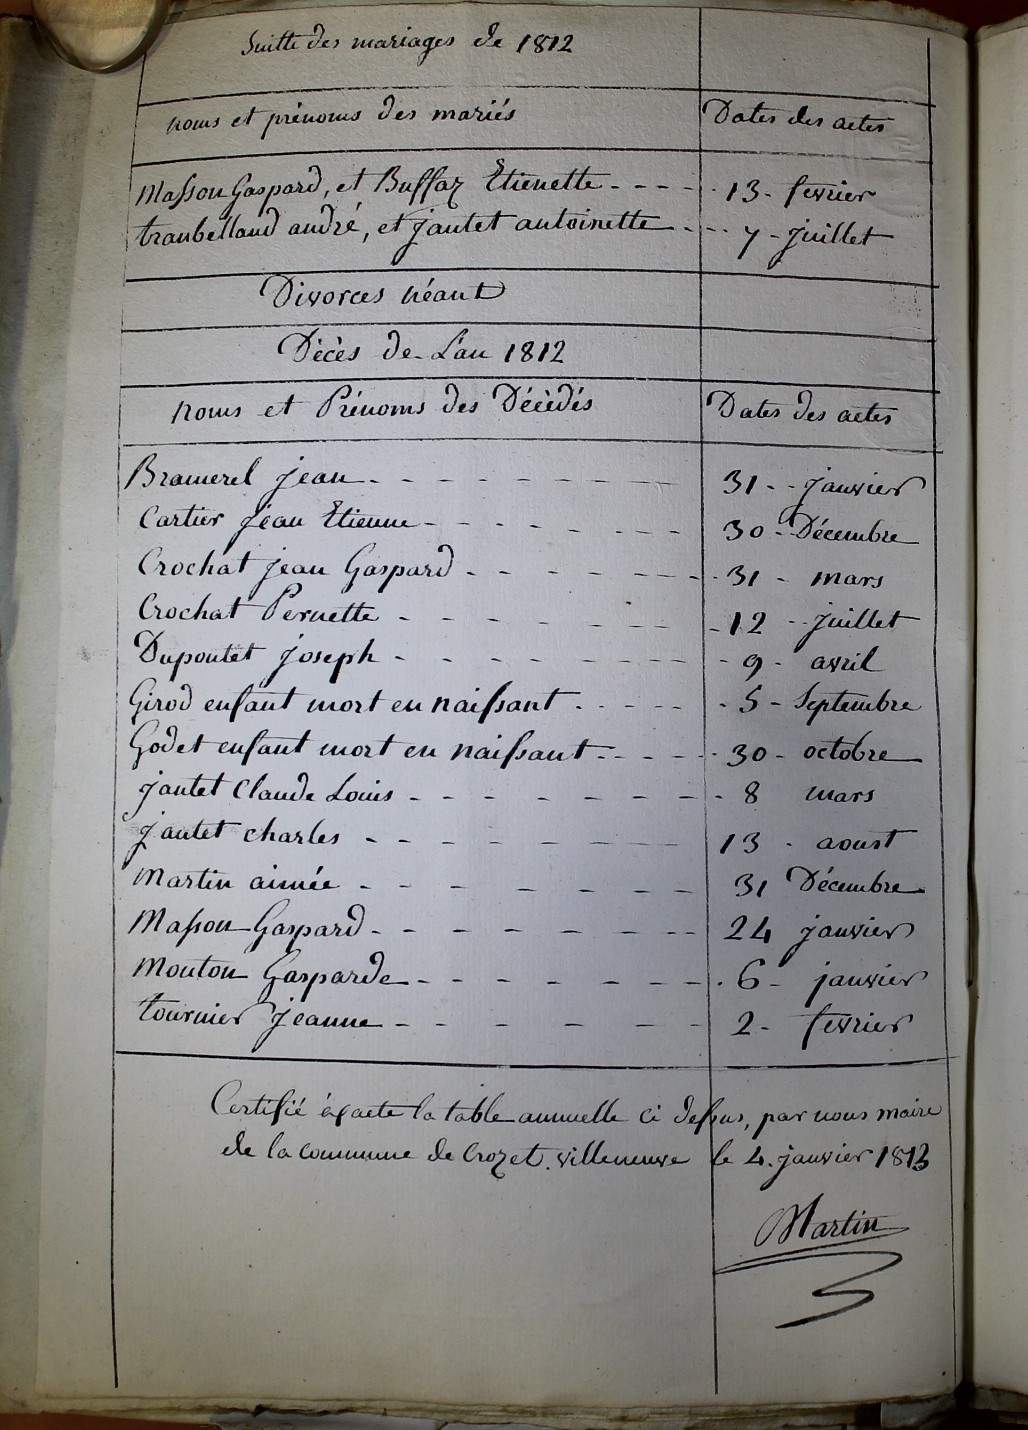 Suitte des mariages de 1812
noms et prénoms des mariés Dates des actes
Masson Gaspard, et Buffaz Etienette - - - - 13 - fevrier
tranbelland andré, et jantet antoinette - - - 7 - juillet
Divorces Néant
Décès de L'an 1812
Noms et Prénoms des Décèdés Dates des actes
Bramerel jean - - - - - - - - 31 - - janvier
Cartier jean Etienne - - - - - - - 30 - Décembre
Crochat jean Gaspard - - - - - - - 31 - mars
Crochat Pernette - - - - - - - - 12 - juillet
Dupontet joseph - - - - - - - - 9 - avril
Girod enfant mort en naissant - - - - - 5 - Septembre
Godet enfant mort en naissant - - - - - 30 - octobre
jantet Claude Louis - - - - - - - - 8 mars
jantet charles - - - - - - - - 13 - aoust
Martin aimée - - - - - - - 31 Décembre
Masson Gaspard - - - - - - - - 24 janvier
Mouton Gasparde - - - - - - - - 6 - janvier
tournier jeanne - - - - - - 2 - fevrier
Certifié éxacte la table annuelle ci dessus, par nous maire
de la commune de Crozet. villeneuve le 4. janvier 1813
Martin